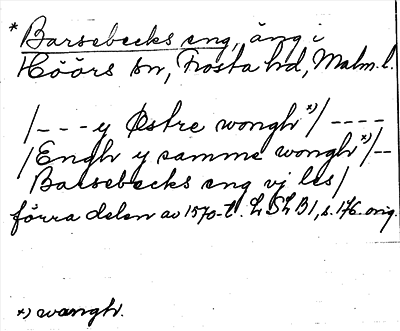 * Barsebecks eng, äng i
Höörs sn, Frosta hd, Malm. l.
/--- y Østre wongh *)/ ----
/Engh y samme wongh *)/--
Barsebecks eng vj les/
förra delen av 1570-t. LSLB1, s. 176. orig.
*) wangh.